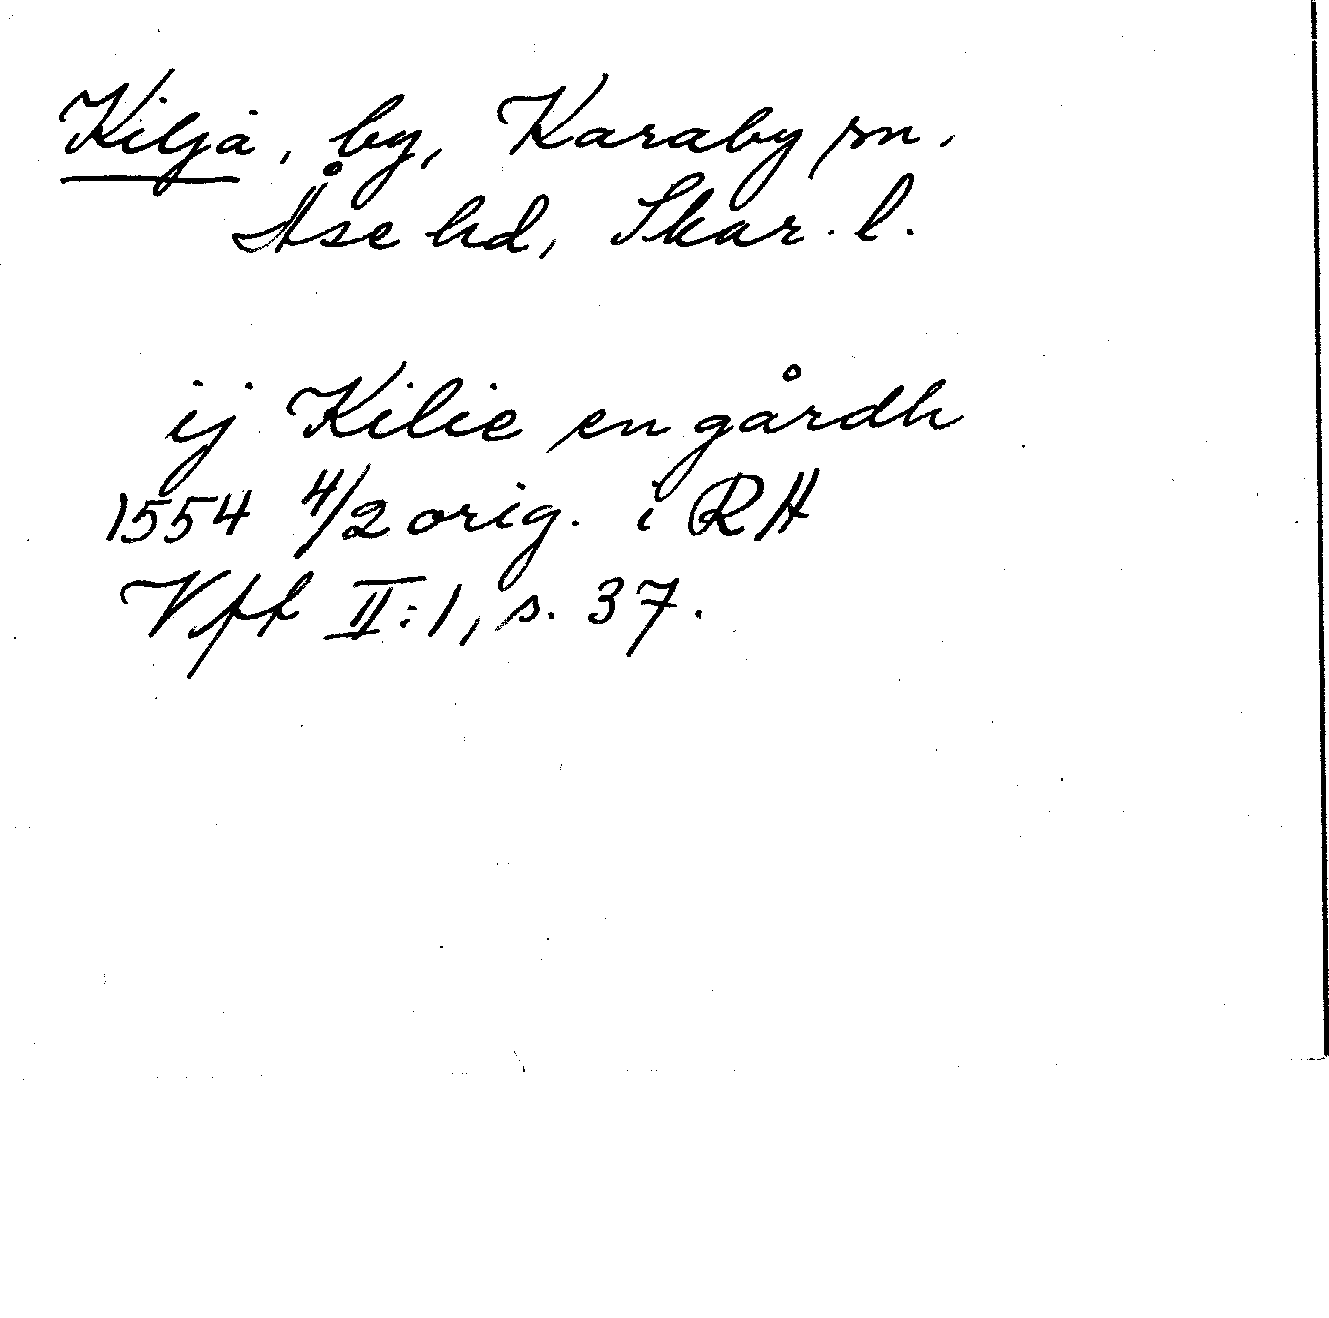 Kilja, by, Karaby sn.
Åse hd, Skar. l.
ij Kilie en gårdh
1554 4/2 orig. i RA
Vff II:1, s. 37.